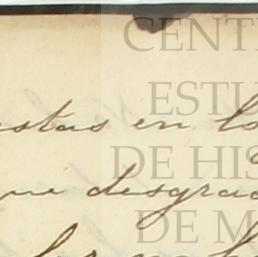 CENT
ESTU
DE HIS
DE M
estas en lo
que desgrac